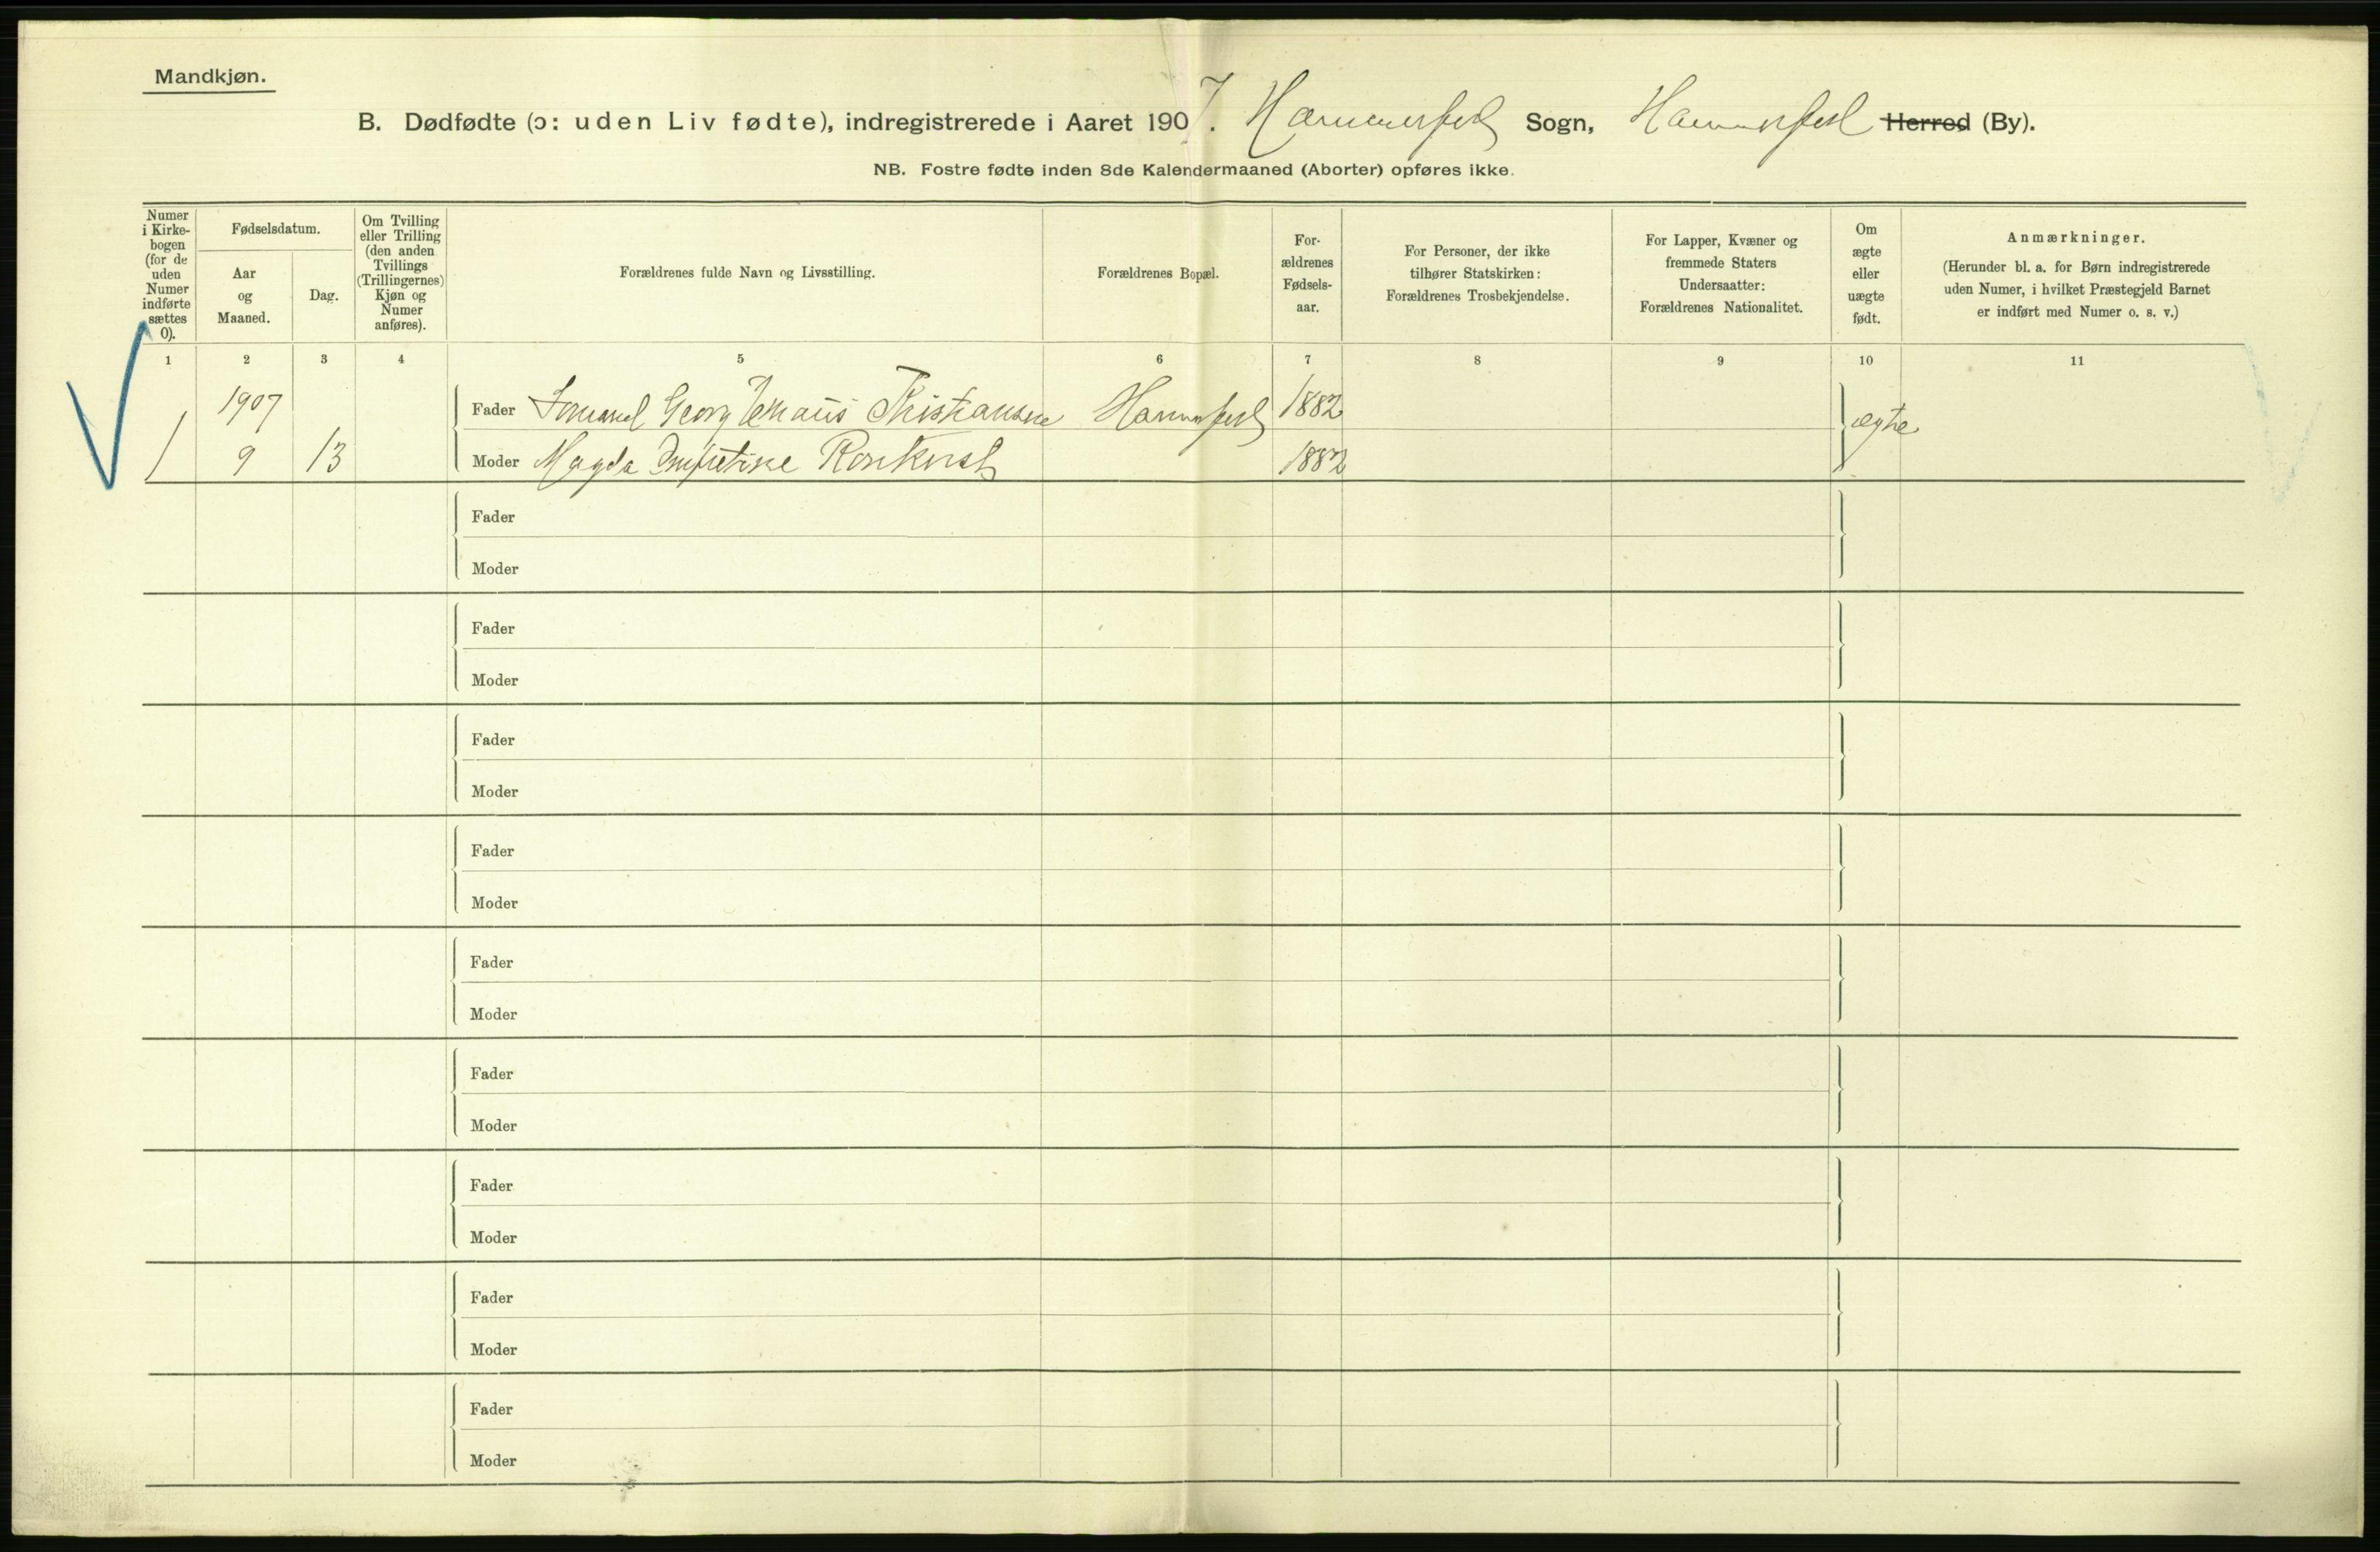 Mandkjøn.
B. Dødfødte (ɔ: uden Liv fødte), indregistrerede i Aaret 1907. Hammerfest Sogn, Hammerfest Herred (By).
NB. Fostre fødte inden 8de Kalendermaaned (Aborter) opføres ikke.
Numer
i Kirke-
bogen
(for de
uden
Numer
indførte
sættes
0).
Fødselsdatum.
Aar
og
Maaned.
Dag.
Om Tvilling
eller Trilling
(den anden
Tvillings
(Trillingernes)
Kjøn og
Numer
anføres).
Forældrenes fulde Navn og Livsstilling.
Forældrenes Bopæl.
For-
ældrenes
Fødsels-
aar.
For Personer, der ikke
tilhører Statskirken:
Forældrenes Trosbekjendelse.
For Lapper, Kvæner og
fremmede Staters
Undersaatter:
Forældrenes Nationalitet.
Om
ægte
eller
uægte
født.
Anmærkninger.
(Herunder bl. a. for Børn indregistrerede
uden Numer, i hvilket Præstegjeld Barnet
er indført med Numer o. s. v.)
1 2 3 4 5 6 7 8 9 10 11
1907 Fader Georg Hammerfest 1882 ægte
1 9 13 Moder Magda 1882
Fader
Moder
Fader
Moder
Fader
Moder
Fader
Moder
Fader
Moder
Fader
Moder
Fader
Moder
Fader
Moder
Fader
Moder